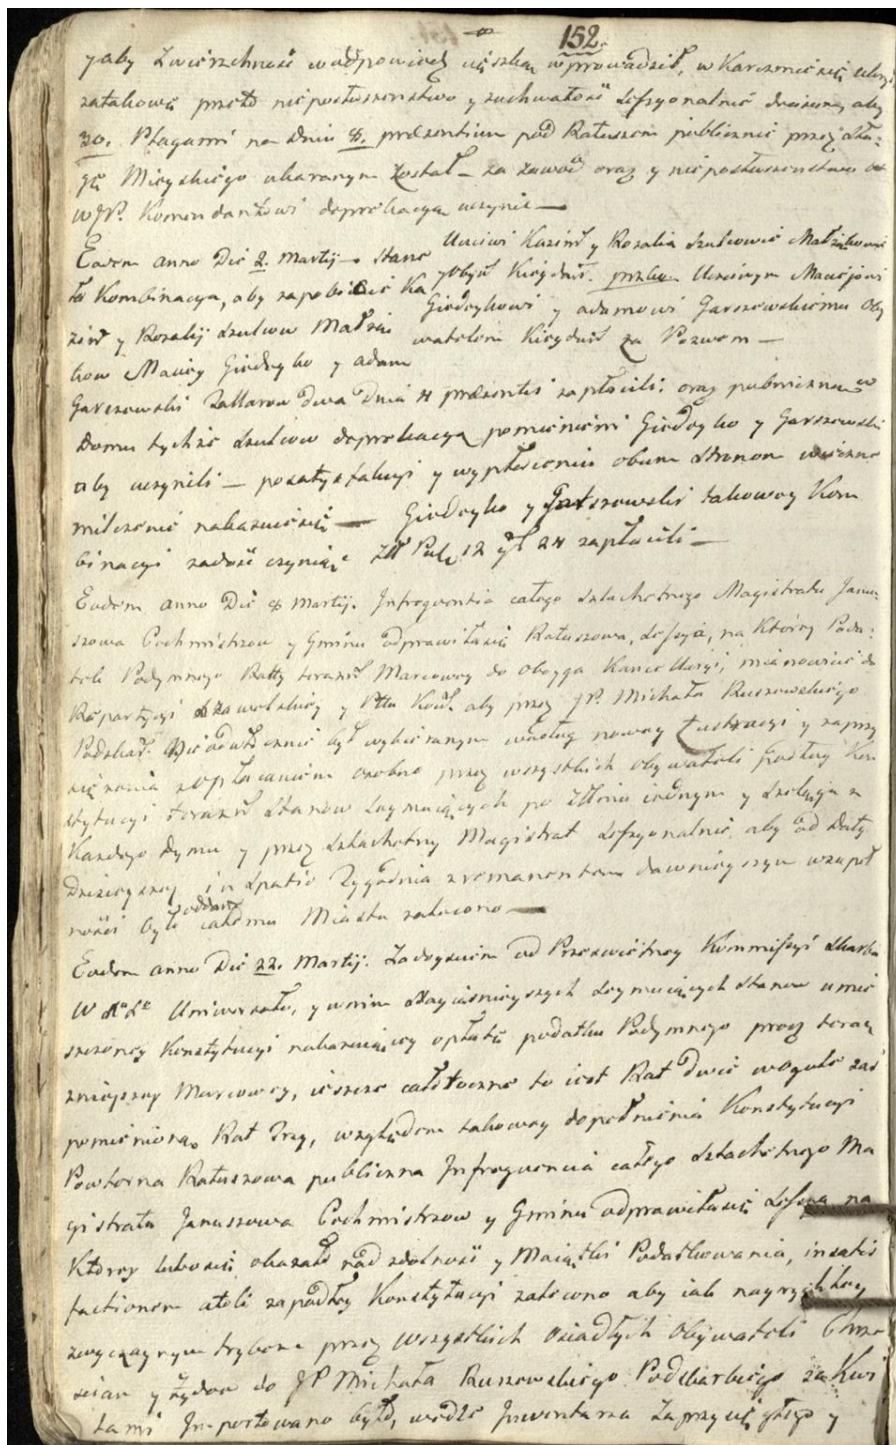 152.
yaby Zwierzchność w odpowiedź ciężką wprowadził, w Karczmie się
zatakowe przeto nieposłuszenstwo y zuchwałość Sessyonalnie aby
30. Plagami na Dniu 8. praesentium pod Ratuszem publicznie przez Słu=
gę Mieyskiego ukaranym został — za zawod oraz y nieposłuszenstwo
WJP. Komendantowi deprekacyą uczynił —
Eodem anno Die 2. Martij — Stane
ła Kombinacya, aby zapobiedz Ka
zim y Rozalij Szulcow Małżą
kow Maciey Giedryho y adam
Uczciwi Kazim y Rozalia Szulcowie Małżąkowie
obyw Kieydan. Uczciwym Maciejowi
Giedrykowi y adamowi Garszewskiemu Oby
watelom Kieydan za Pozwem —
Garszewski Tallarow dwa Dnia 4 praesentis zapłacili: oraz publicznie w
Domu tychże Szulcow deprekacyą pomienieni Giedryho y Garszewski
aby uczynili — po satysfakcyi y wypłaceniu obum Stronom wieczne
milczenie nakazuie się — Giedryho y Garszewski takowey Kom
binacyi zadość czyniąc Złł Pol. 12 gł 24 zapłacili —
Eodem anno Die 8 Martij. Infrequentia całego Szlachetnego Magistratu Janu=
szowa Cechmistrzow y Gminu odprawiła się Ratuszowa, Sessya, na Ktorey Poda=
tek Podymnego Ratty teraz Marcowey do oboyga Kancellaryi, mianowicie do
Repartycyi y Pttu Kow. aby przez JP. Michała Ruszewskiego
Podskar. był wybieranym według nowey Lustracyi y zaprzy
siężenia zopłaceniem osobno przez wszystkich obywateli podług Kon
stytucyi teraz Stanow Seymuiących po Złłmu iednym y
Każdego dymu y przez Szlachetny Magistrat Sessyonalnie, aby od Daty
Dzisieyszey in Spatio Tygodnia zremanentem dawnieyszym wzupeł
ności było oddano całemu Miastu zalecono —
Eodem anno Die 22. Martij. Zadoyściem od Przeswietney Kommissyi Skarbu
W XŁo Uniwersału, y wnim Nayiaśnieyszych Seymuiących Stanow umie
szczoney Konstytucyi nakazuiącey opłatę podatku Podymnego procz teraz
znieyszey Marcowey, ieszcze całoroczne to iest Rat dwie wogule zaś
pomienione Rat Trzy, względem takowey dopełnienia Konstytucyi
Powtorna Ratuszowa publiczna Infrequencia całego Szlachetnego Ma
gistratu Januszowa Cechmistrzow y Gminu odprawiła się Sessya na
Ktorey lubo się okazało nad zdolność y Maiątki Podatkowania, insatis
factionem atoli zapadłey Konstytucyi zalecono aby iak nayrychley
zwyczaynym trybem przez wszystkich Osiadłych Obywateli Chrze
ścian y Żydow do JP Michała Ruszewskiego Podskarbiego za Kwi
tami Importowano było, wedle Inwentarza Zaprzysiężłego y